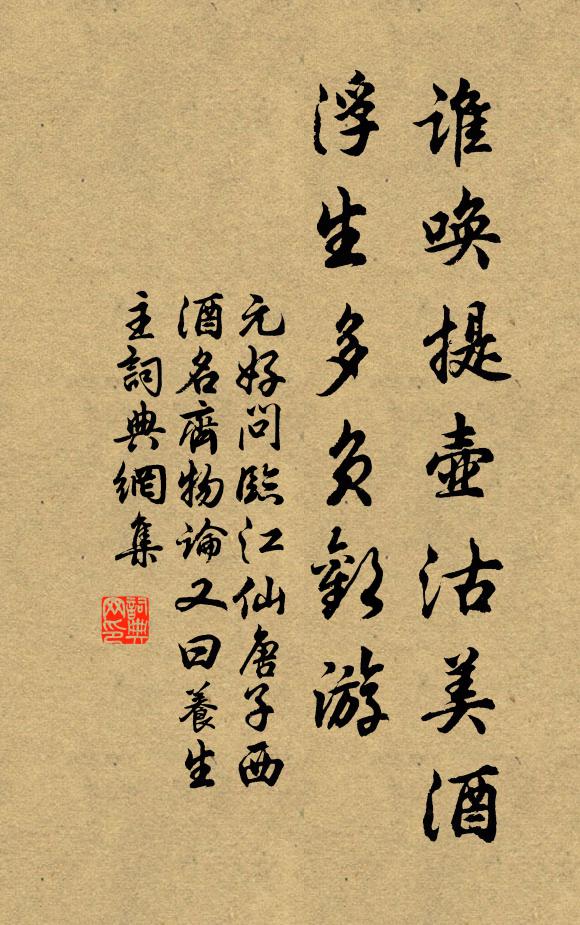 誰喚提壺沽美酒
浮生多負歡游
元好問臨江仙唐子西
酒名齊物論又曰養生
主詞典網集
詞典
网印